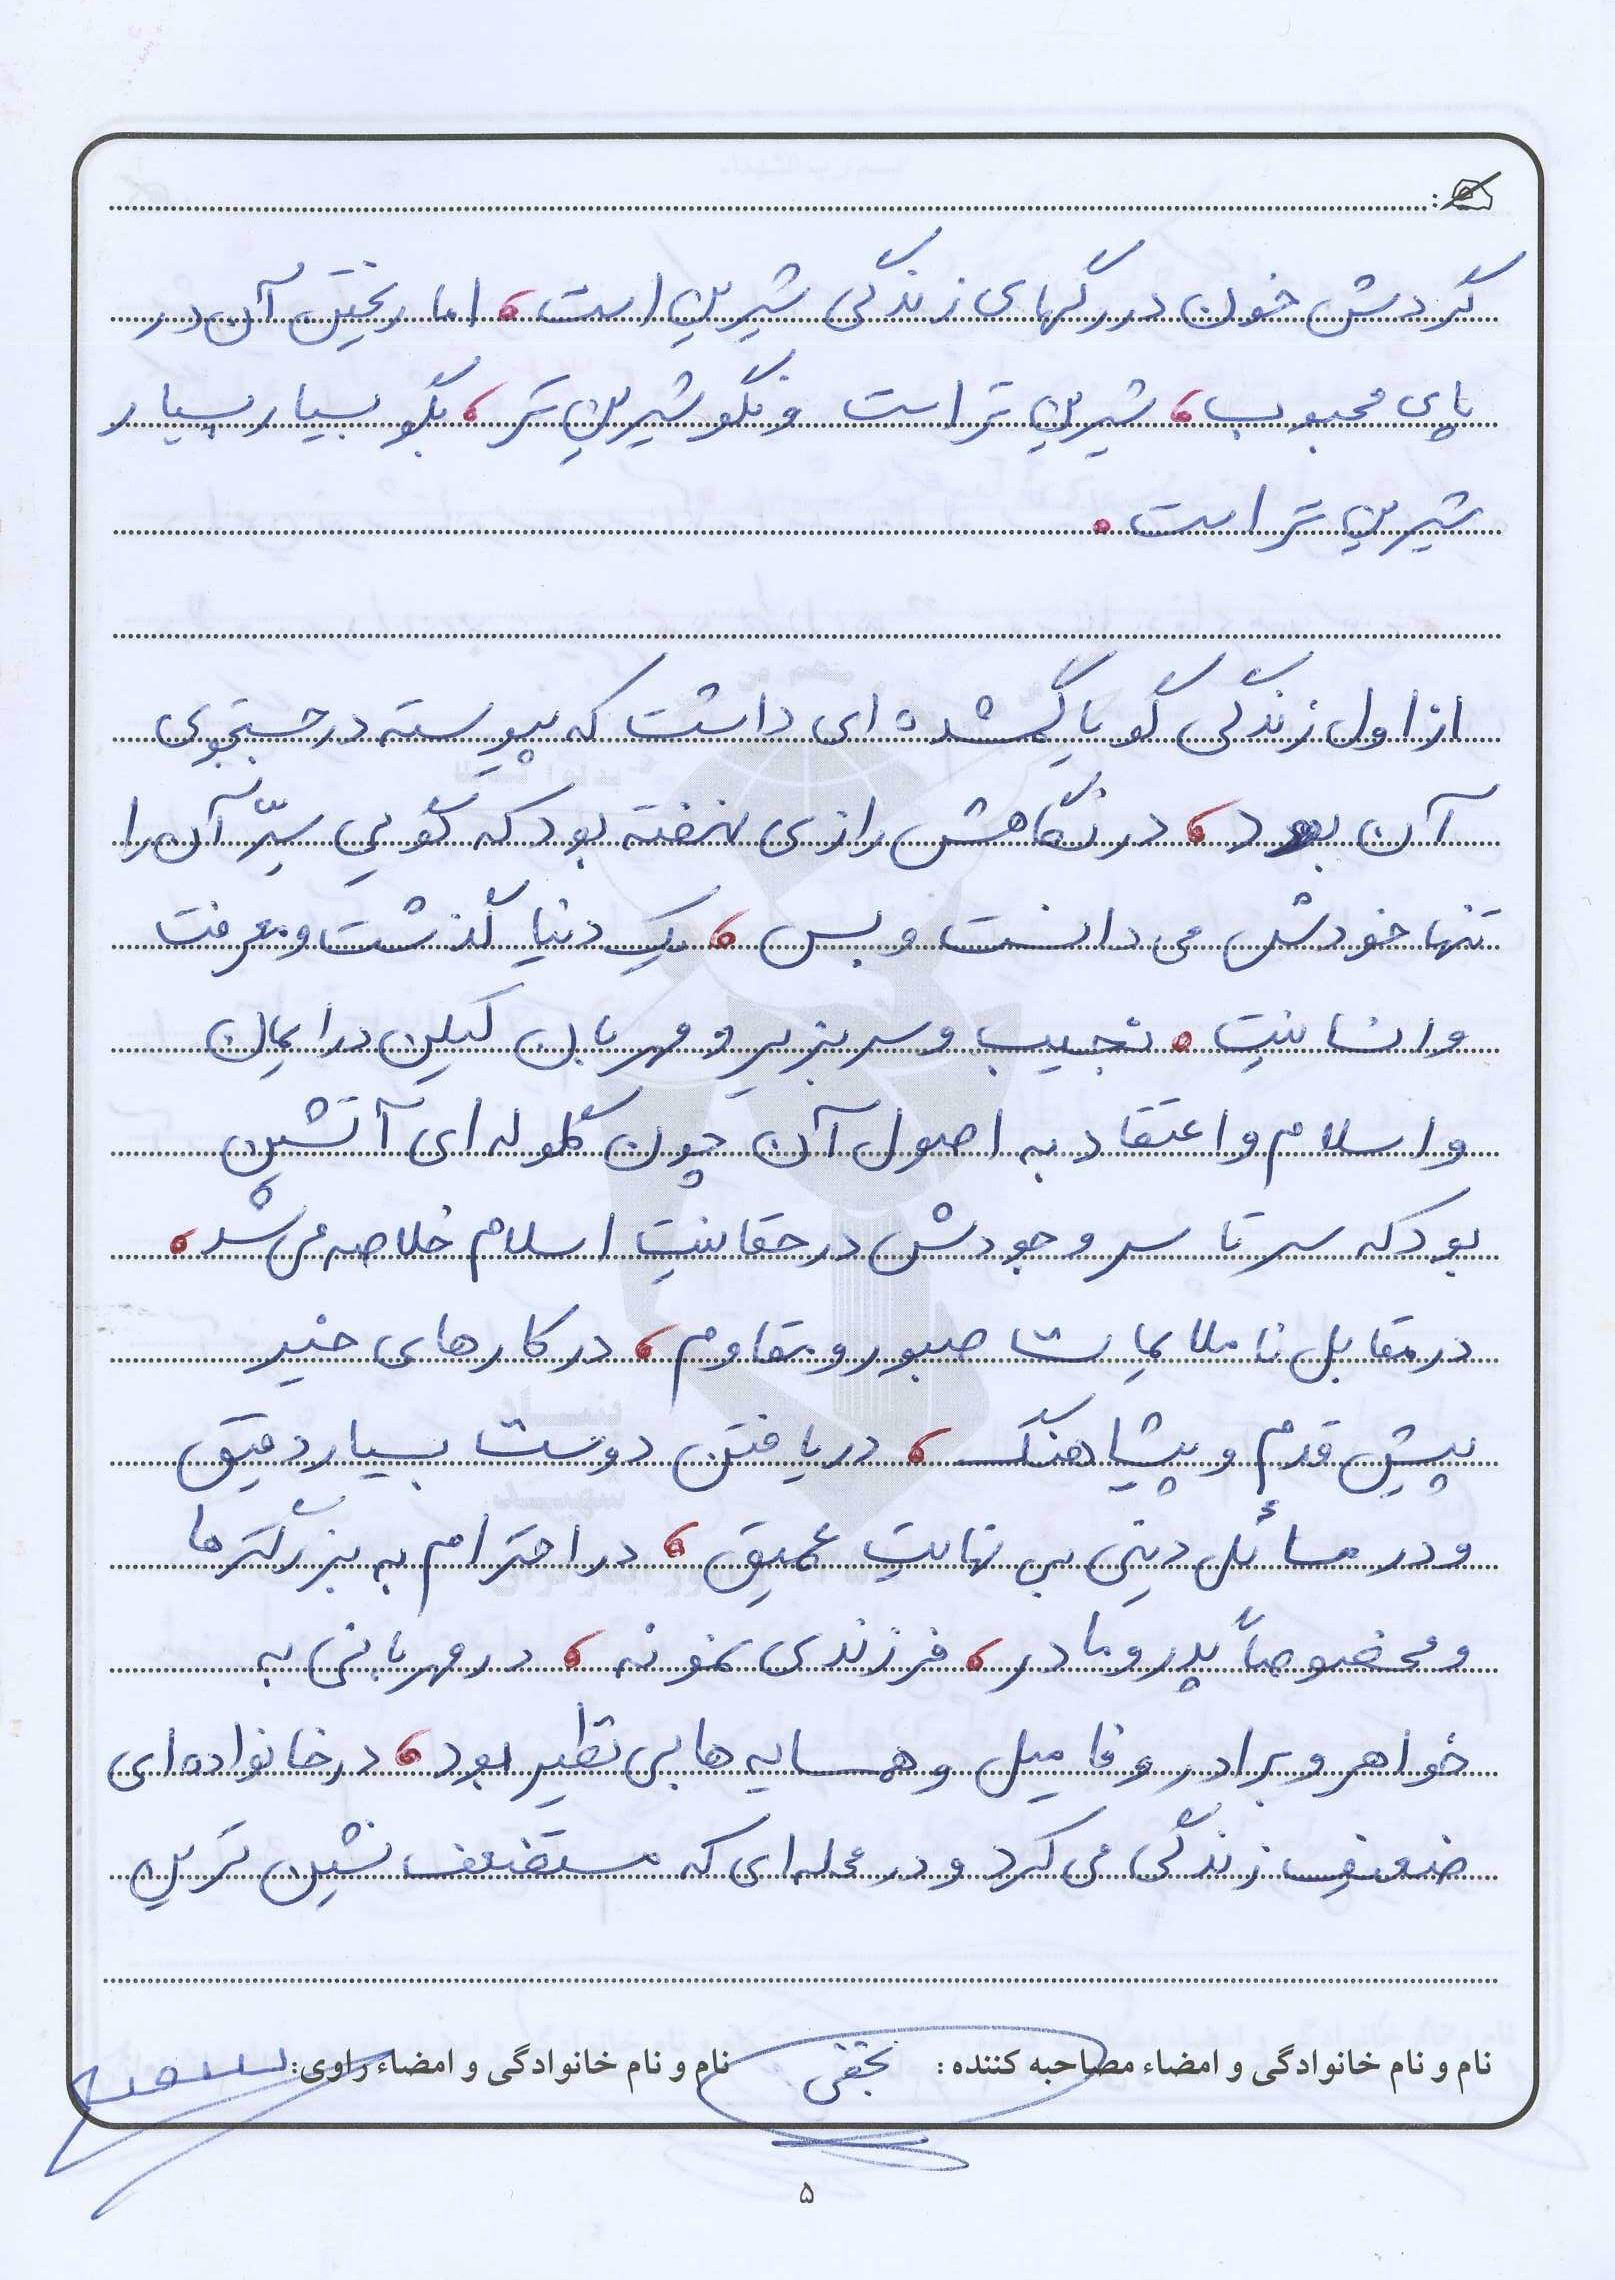 گردش خون در رگهای زندگی شیرین است، اما ریختن آن در
پای محبوب، شیرین تر است و نگو شیرین تر، بگو بسیار بسیار
شیرین تر است.
از اول زندگی گویا گمشده ای داشت که پیوسته در جستجوی
آن بود، در نگاهش رازی نهفته بود که گویی سِرّ آن را
تنها خودش می دانست و بس، یک دنیا گذشت و معرفت
و انسانیت. نجیب و سربزیر و مهربان لیکن در ایمان
و اسلام و اعتقاد به اصول آن چون گلوله ای آتشین
بود که سر تا سر وجودش در حقانیت اسلام خلاصه می شد،
در مقابل ناملایمات صبور و مقاوم، در کارهای خیر
پیش قدم و پیشاهنگ، در یافتن دوست بسیار دقیق
و در مسائل دینی بی نهایت عمیق، در احترام به بزرگترها
و مخصوصاً پدر و مادر، فرزندی نمونه، در مهربانی به
خواهر و برادر و فامیل و همسایه ها بی نظیر بود، در خانواده ای
ضعیف زندگی می کرد و در محله ای که مستضعف نشین ترین
نام و نام خانوادگی و امضاء مصاحبه کننده: نجفی نام و نام خانوادگی و امضاء راوی:
۵